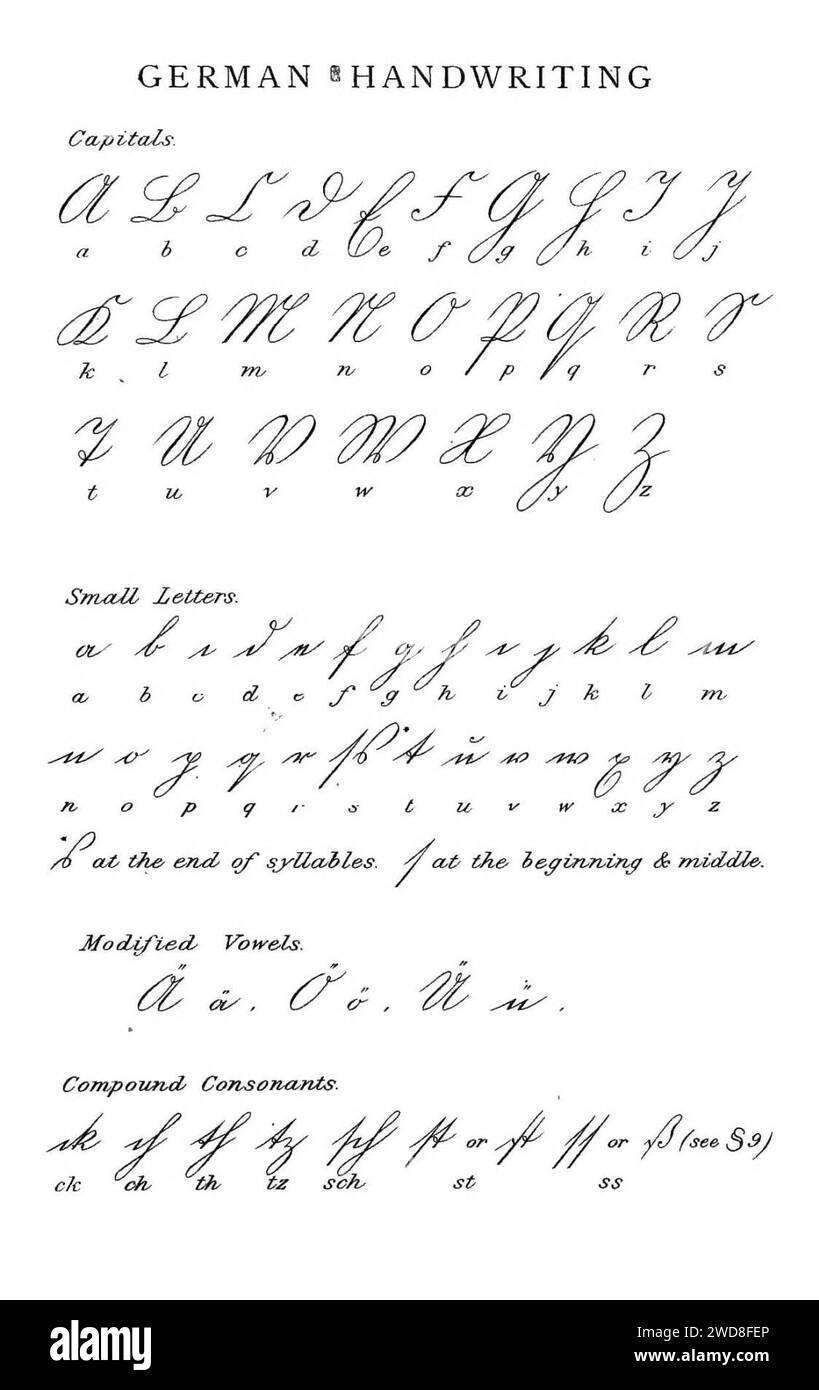 GERMAN HANDWRITING
Capitals.
A B C D E F G H I J
a b c d e f g h i j
K L M N O P Q R S
k l m n o p q r s
T U V W X Y Z
t u v w x y z
Small Letters.
a b c d e f g h i j k l m
a b c d e f g h i j k l m
n o p q r ſ s t u v w x y z
n o p q r s t u v w x y z
s at the end of syllables. ſ at the beginning & middle.
Modified Vowels.
Ä ä. Ö ö. Ü ü.
Compound Consonants.
ck ch th tz sch st or st ss or ß (see §9)
ck ch th tz sch st ss
alamy
Image ID: 2WD8FEP
www.alamy.com